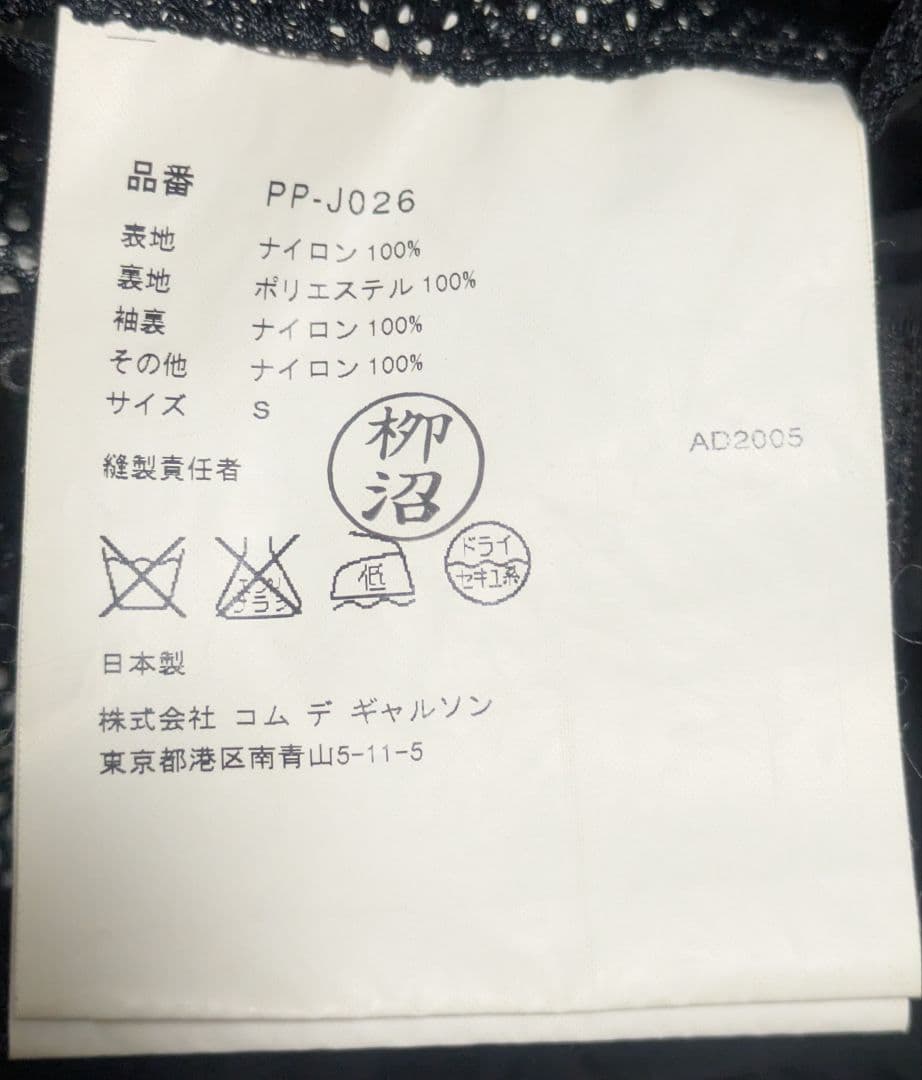 品番 PP-J026
表地 ナイロン100%
裏地 ポリエステル100%
袖裏 ナイロン100%
その他 ナイロン100%
サイズ S
AD2005
縫製責任者 柳沼
エンソ
サラシ
低
ドライ
セキユ系
日本製
株式会社 コム デ ギャルソン
東京都港区南青山5-11-5